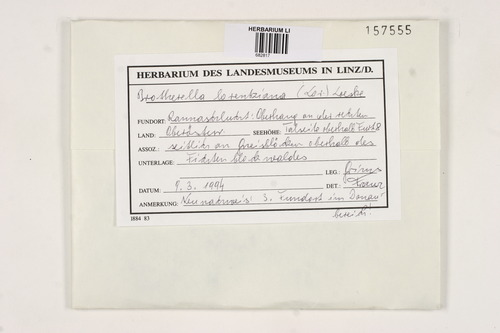 HERBARIUM LI
682817
157555
HERBARIUM DES LANDESMUSEUMS IN LINZ/D.
Brotherella lorentziana (Lor.) Loeske
FUNDORT: Rannaschlucht: Oberhang an der rechten
LAND: Oberösterr. SEEHÖHE: Talseite oberhalb
ASSOZ.: seitlich an Gneisblöcken oberhalb des
UNTERLAGE: Fichten Blockwaldes
LEG.: Grims
DATUM: 9.3.1994 DET.:
ANMERKUNG: Neunachweis: 3. Fundort im Donau-
bereich!
I884 83